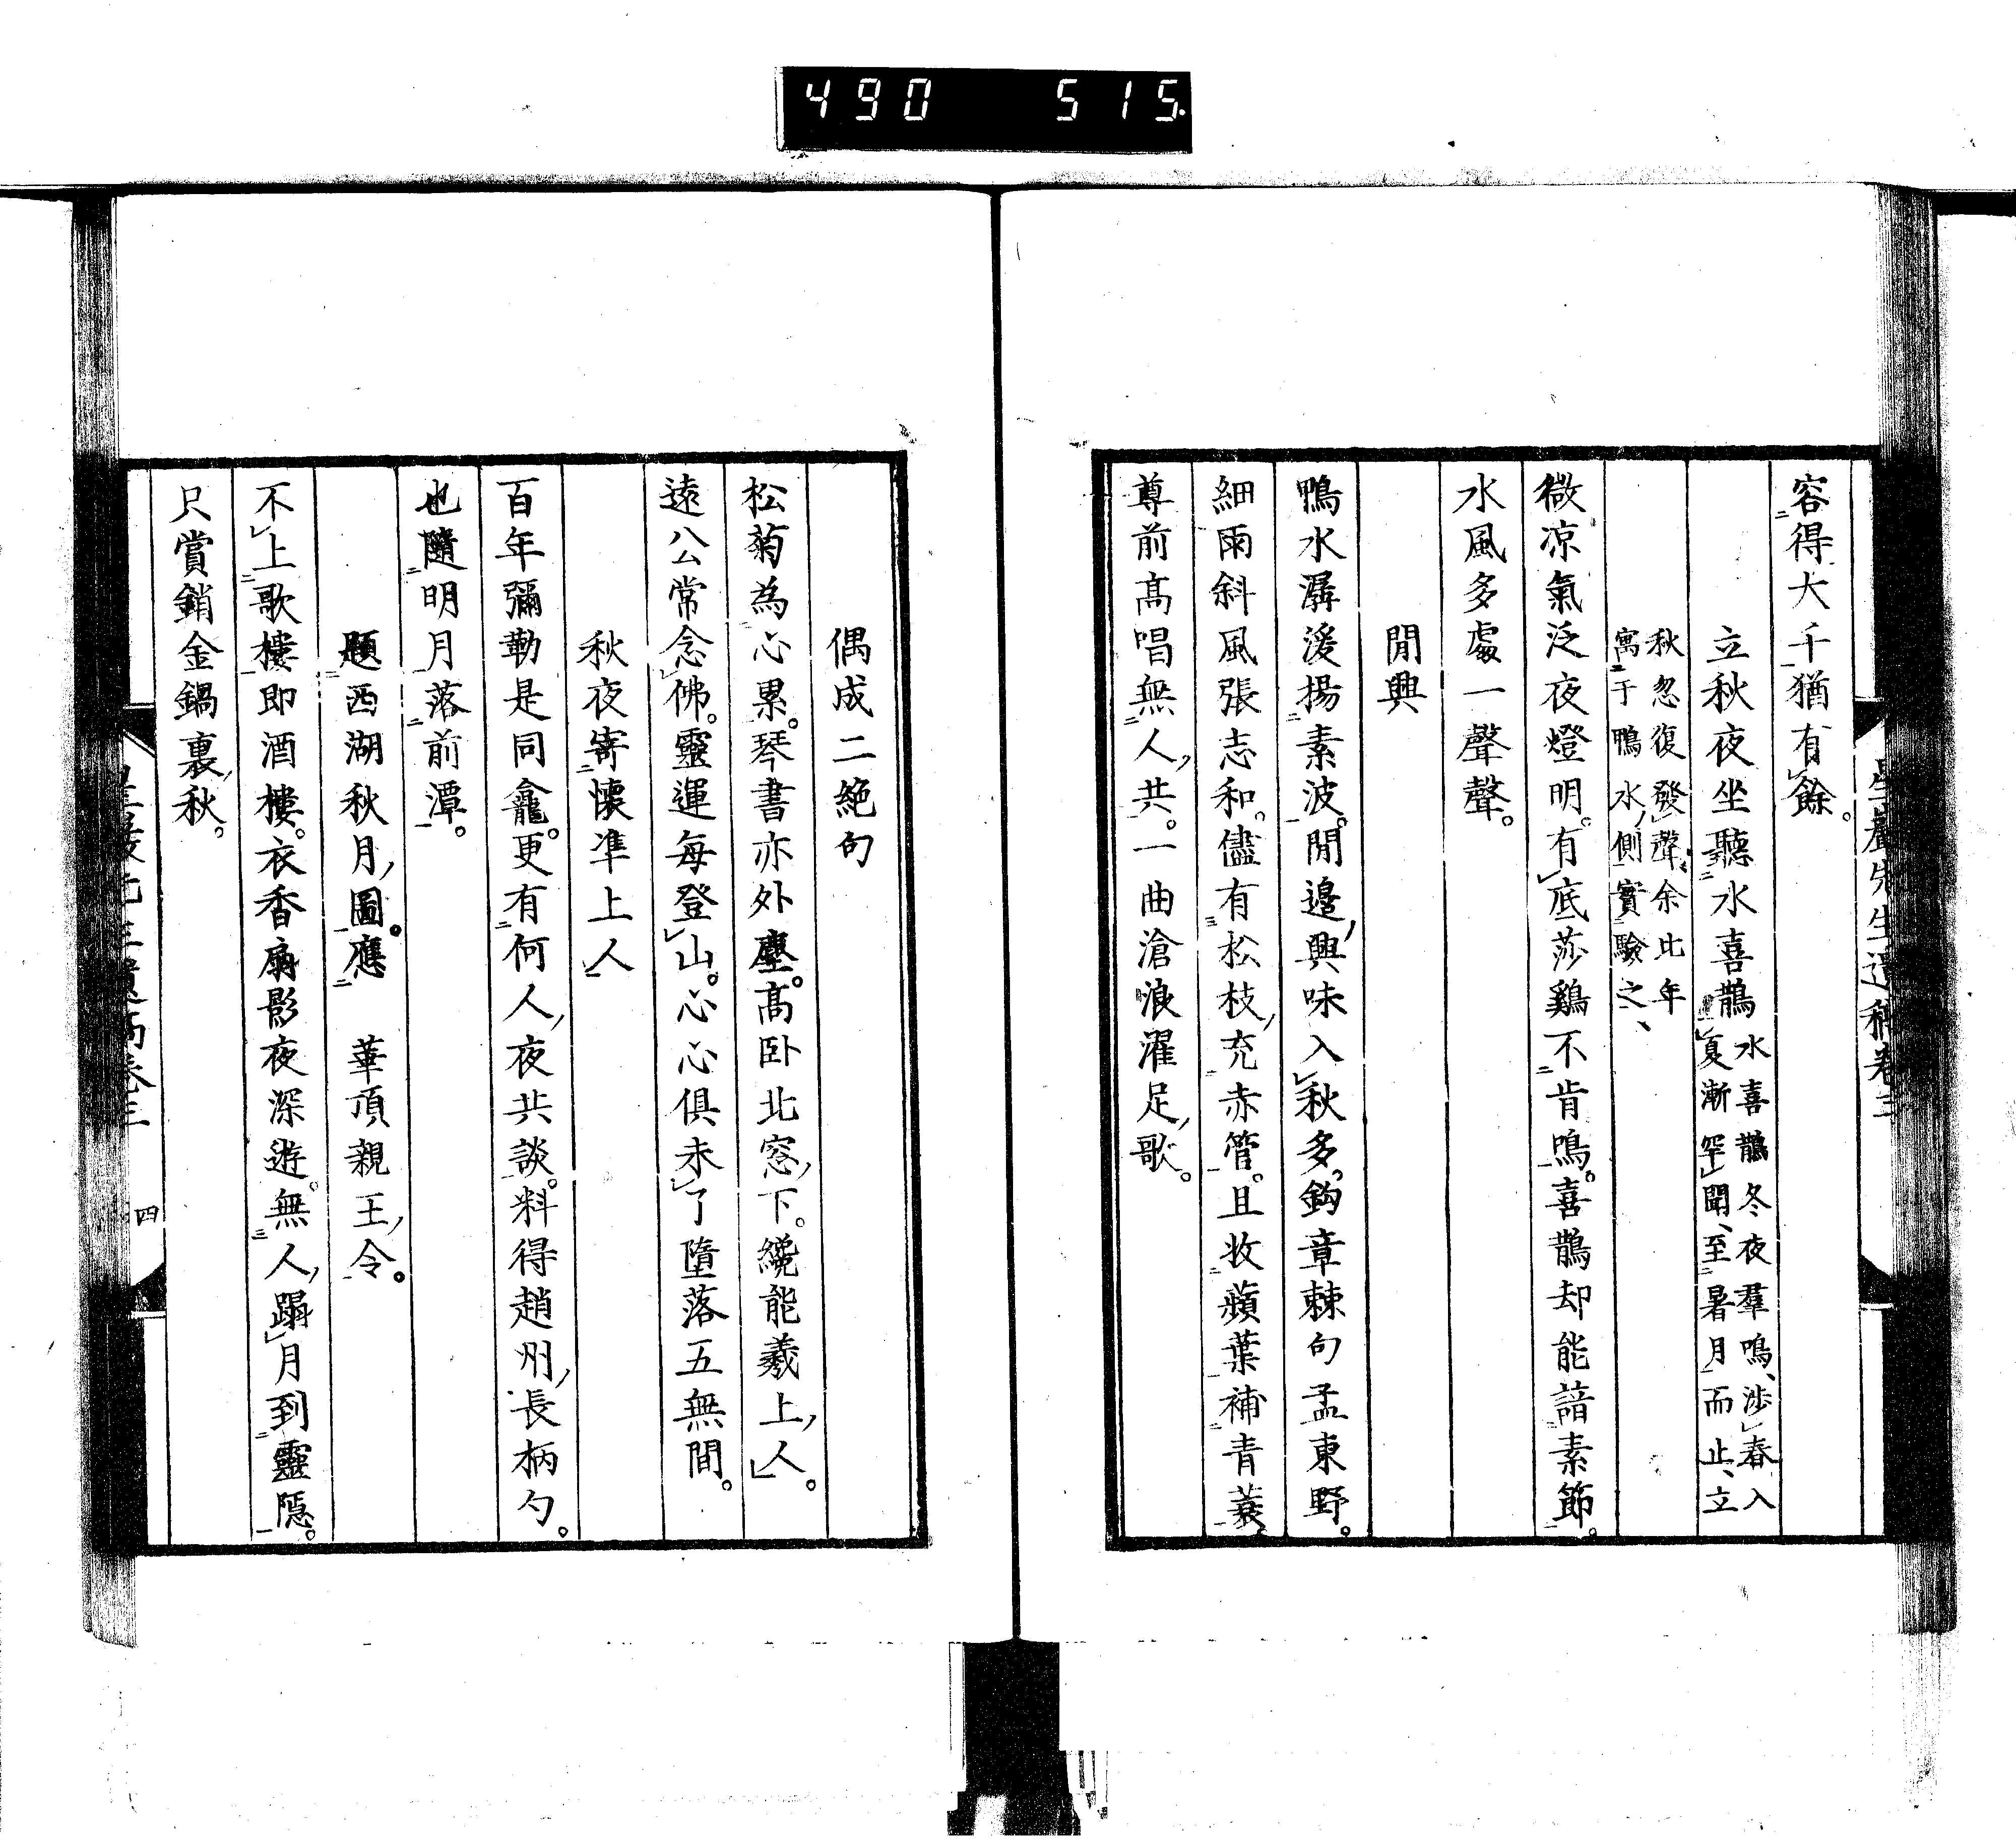 490 515.
容得大千猶有餘。
立秋夜坐聽水喜鵲 水喜鵲冬夜羣鳴、渉春入
夏漸罕聞、至暑月而止、立
秋忽復發聲、余比年
寓于鴨水側實驗之、
微凉氣泛夜燈明。有底莎鷄不肯鳴。喜鵲却能諳素節。
水風多處一聲聲。
閒興
鴨水潺湲揚素波。閒邊興味入秋多。鈎章棘句孟東野。
細雨斜風張志和。儘有松枝充赤管。且收蘋葉補青蓑。
尊前高唱無人共。一曲滄浪濯足歌。
偶成二絶句
松菊為心累。琴書亦外塵。高臥北窓下。纔能羲上人。
遠公常念佛。靈運每登山。心心俱未了墮落五無間。
秋夜寄懷準上人
百年彌勒是同龕。更有何人夜共談。料得趙州長柄勺。
也隨明月落前潭。
題西湖秋月圖。應 華頂親王令。
不上歌樓即酒樓。衣香扇影夜深遊。無人蹋月到靈隱。
只賞銷金鍋裏秋。
四